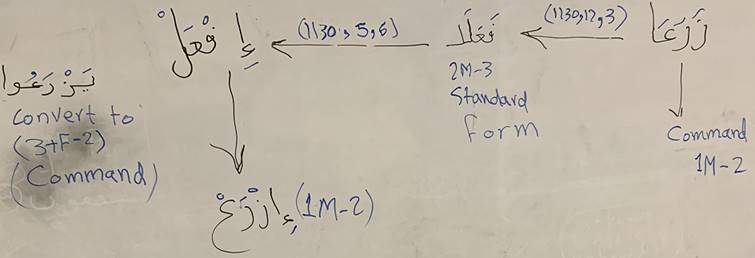 زَرَعَا
(1130,12,3)
فَعَلَا
(1130, 5,6)
إِفْعَلْ
Command
1M-2
2M-3
Standard
Form
إِزْرَعْ (1M-2)
يَزْرَعُوا
Convert to
(3+F-2)
(Command)